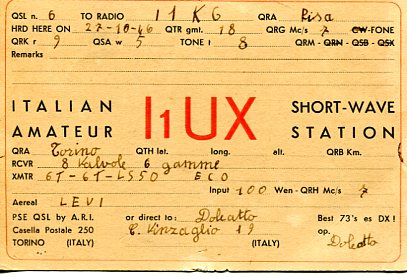 QSL n. 6 TO RADIO I1KG QRA Pisa
HRD HERE ON 27-10-46 QTR gmt. 18 QRG Mc/s 7 CW-FONE
QRK r 9 QSA w 5 TONE t 8 QRM - QRN - QSB - QSX
Remarks
ITALIAN AMATEUR
I1UX
SHORT-WAVE STATION
QRA Torino QTH lat. long. alt. QRB Km.
RCVR 8 Valvole 6 gamme
XMTR 6T-6T-LS50 ECO
Input 100 Wen - QRH Mc/s 7
Aereal LEVI
PSE QSL by A.R.I. or direct to: Doleatto Best 73's es DX !
Casella Postale 250 C. Vinzaglio 19 op.
TORINO (ITALY) (ITALY) Doleatto